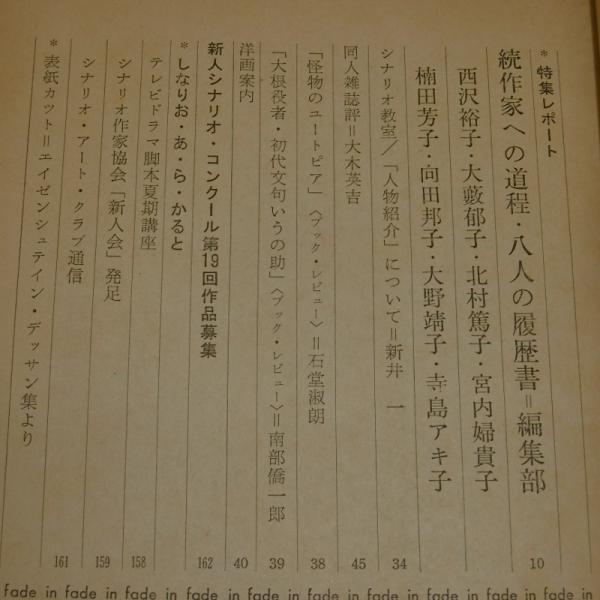 *特集レポート
続作家への道程・八人の履歴書＝編集部 10
西沢裕子・大藪郁子・北村篤子・宮内婦貴子
楠田芳子・向田邦子・大野靖子・寺島アキ子
シナリオ教室／「人物紹介」について＝新井 一 34
同人雑誌評＝大木英吉 45
「怪物のユートピア」〈ブック・レビュー〉＝石堂淑朗 38
「大根役者・初代文句いうの助」〈ブック・レビュー〉＝南部僑一郎 39
洋画案内 40
新人シナリオ・コンクール第19回作品募集 162
*しなりお・あ・ら・かると
テレビドラマ脚本夏期講座 158
シナリオ作家協会「新人会」発足 159
シナリオ・アート・クラブ通信 161
*表紙カット＝エイゼンシュテイン・デッサン集より
fade in fade in fade in fade in fade in fade in fade in fade in fade in